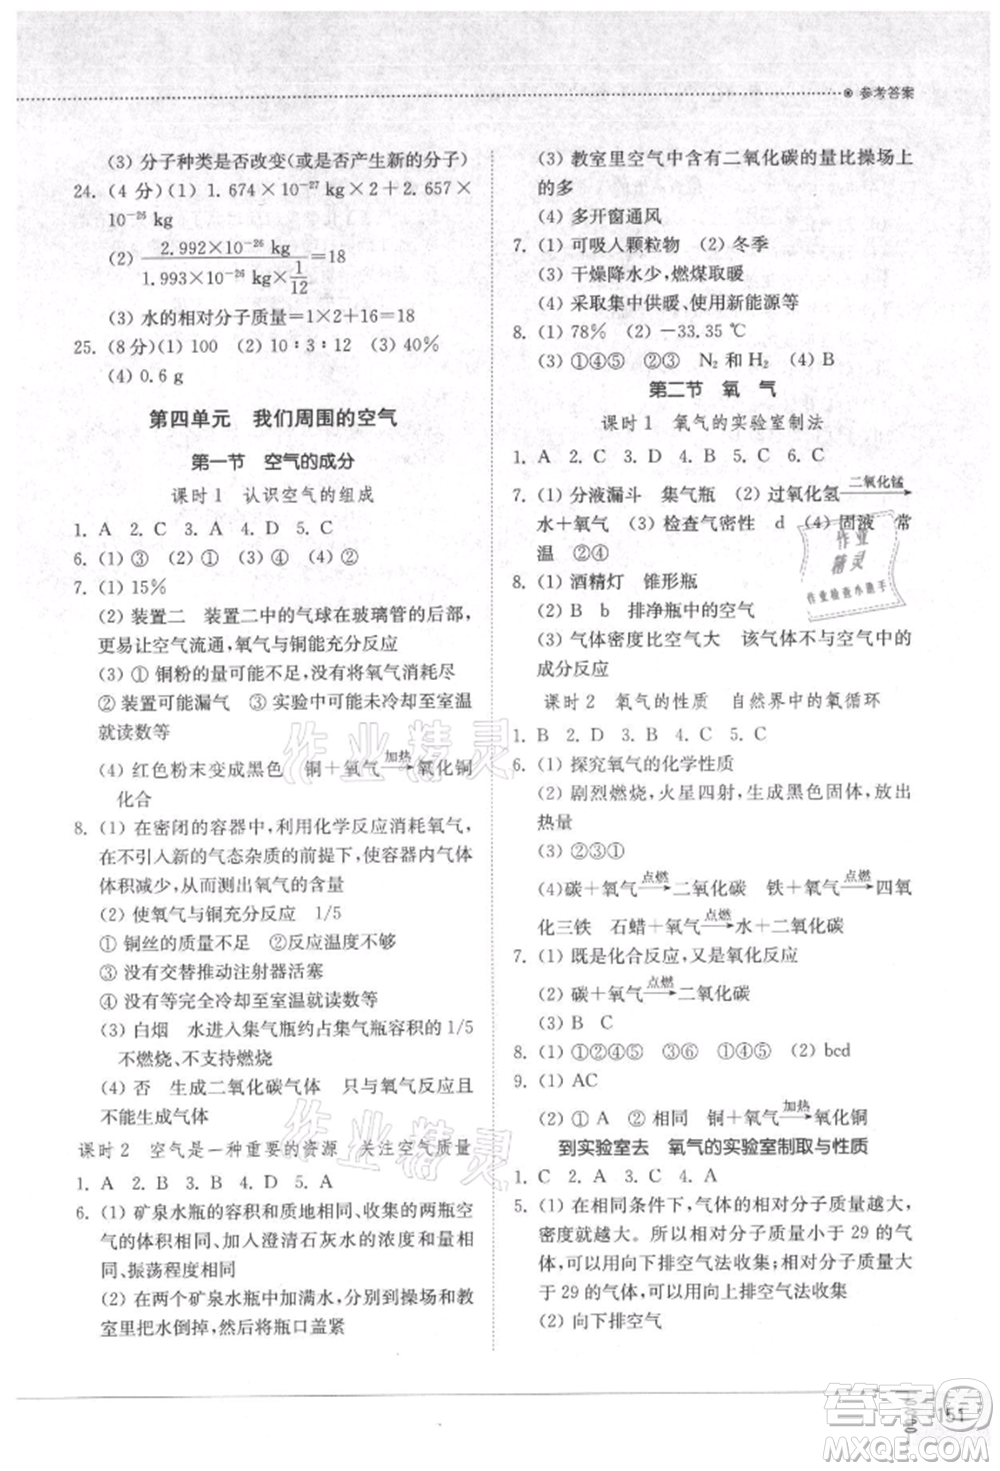 参考答案
(3) 分子种类是否改变(或是否产生新的分子)
24. (4 分)(1) 1.674×10⁻²⁷ kg×2+2.657×
10⁻²⁶ kg
(2) 2.992×10⁻²⁶ kg / 1.993×10⁻²⁶ kg×1/12 =18
(3) 水的相对分子质量=1×2+16=18
25. (8 分)(1) 100 (2) 10∶3∶12 (3) 40%
(4) 0.6 g
第四单元 我们周围的空气
第一节 空气的成分
课时 1 认识空气的组成
1. A 2. C 3. A 4. D 5. C
6. (1) ③ (2) ① (3) ① (4) ②
7. (1) 15%
(2) 装置二 装置二中的气球在玻璃管的后部,
更易让空气流通,氧气与铜能充分反应
(3) ① 铜粉的量可能不足,没有将氧气消耗尽
② 装置可能漏气 ③ 实验中可能未冷却至室温
就读数等
(4) 红色粉末变成黑色 铜+氧气 加热→ 氧化铜
化合
8. (1) 在密闭的容器中,利用化学反应消耗氧气,
在不引入新的气态杂质的前提下,使容器内气体
体积减少,从而测出氧气的含量
(2) 使氧气与铜充分反应 1/5
① 铜丝的质量不足 ②反应温度不够
③ 没有交替推动注射器活塞
④ 没有等完全冷却至室温就读数等
(3) 白烟 水进入集气瓶约占集气瓶容积的 1/5
不燃烧、不支持燃烧
(4) 否 生成二氧化碳气体 只与氧气反应且
不能生成气体
课时 2 空气是一种重要的资源 关注空气质量
1. A 2. B 3. B 4. D 5. A
6. (1) 矿泉水瓶的容积和质地相同、收集的两瓶空
气的体积相同、加入澄清石灰水的浓度和量相
同、振荡程度相同
(2) 在两个矿泉水瓶中加满水,分别到操场和教
室里把水倒掉,然后将瓶口盖紧
(3) 教室里空气中含有二氧化碳的量比操场上
的多
(4) 多开窗通风
7. (1) 可吸入颗粒物 (2) 冬季
(3) 干燥降水少,燃煤取暖
(4) 采取集中供暖、使用新能源等
8. (1) 78% (2) −33.35 ℃
(3) ①④⑤ ②③ N₂ 和 H₂ (4) B
第二节 氧 气
课时 1 氧气的实验室制法
1. A 2. C 3. A 4. B 5. C 6. C
7. (1) 分液漏斗 集气瓶 (2) 过氧化氢 二氧化锰→
水+氧气 (3) 检查气密性 d (4) 固液 常
温 ②④
8. (1) 酒精灯 锥形瓶
(2) B b 排净瓶中的空气
(3) 气体密度比空气大 该气体不与空气中的
成分反应
课时 2 氧气的性质 自然界中的氧循环
1. B 2. D 3. B 4. C 5. C
6. (1) 探究氧气的化学性质
(2) 剧烈燃烧,火星四射,生成黑色固体,放出
热量
(3) ②③①
(4)碳+氧气 点燃→ 二氧化碳 铁+氧气 点燃→ 四氧
化三铁 石蜡+氧气 点燃→ 水+二氧化碳
7. (1) 既是化合反应,又是氧化反应
(2) 碳+氧气 点燃→ 二氧化碳
(3) B C
8. (1) ①②④⑤ ③ ①②⑤ (2) bcd
9. (1) AC
(2) ① A ② 相同 铜+氧气 加热→ 氧化铜
到实验室去 氧气的实验室制取与性质
1. C 2. A 3. C 4. A
5. (1) 在相同条件下,气体的相对分子质量越大,
密度就越大。所以相对分子质量小于 29 的气
体,可以用向下排空气法收集;相对分子质量大
于 29 的气体,可以用向上排空气法收集
(2) 向下排空气
作业精灵
作业精灵
作业
精灵
作业检查小助手
151
答案圈
MXQE.COM